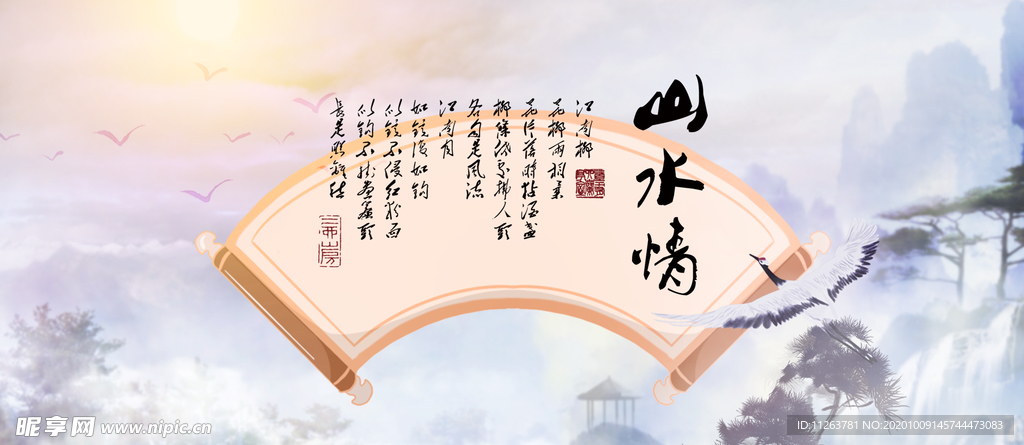 山水情
江南柳
花柳两相柔
花片落时黏酒盏
柳条低处拂人头
各自是风流
江南月
如镜复如钩
似镜不侵红粉面
似钩不挂画帘头
长是照离愁
昵享网 www.nipic.cn
ID:11263781 NO:20201009145744473083